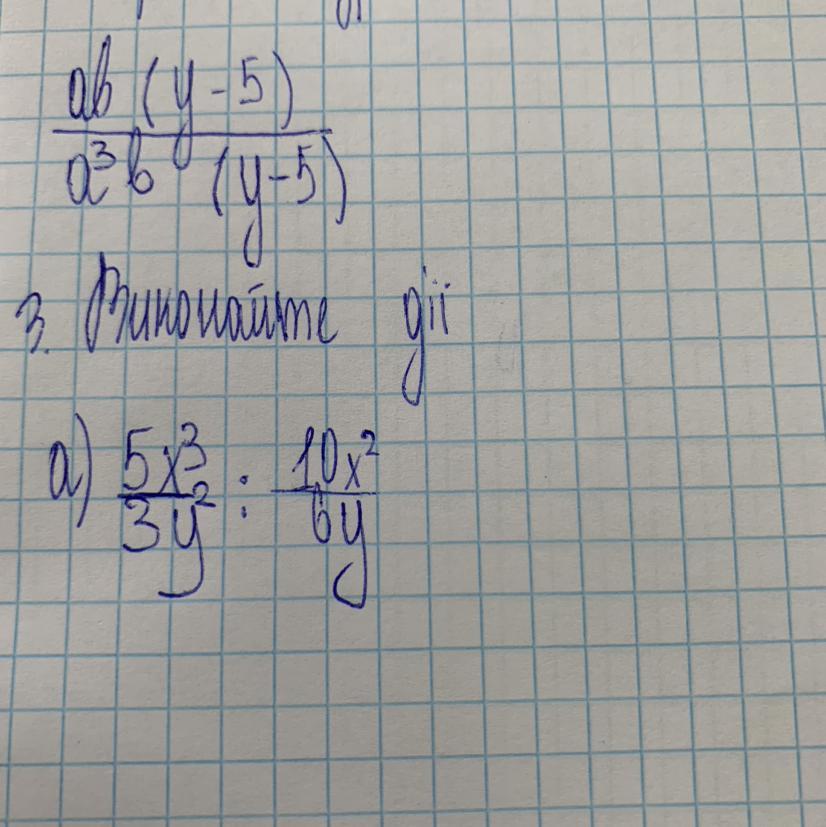 ab (y-5)
a³b (y-5)
3. Виконайте дії
а) 5x³ : 10x²
3y² 6y